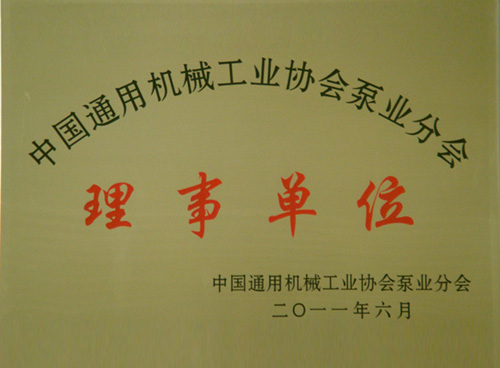 中国通用机械工业协会泵业分会
理事单位
中国通用机械工业协会泵业分会
二〇一一年六月